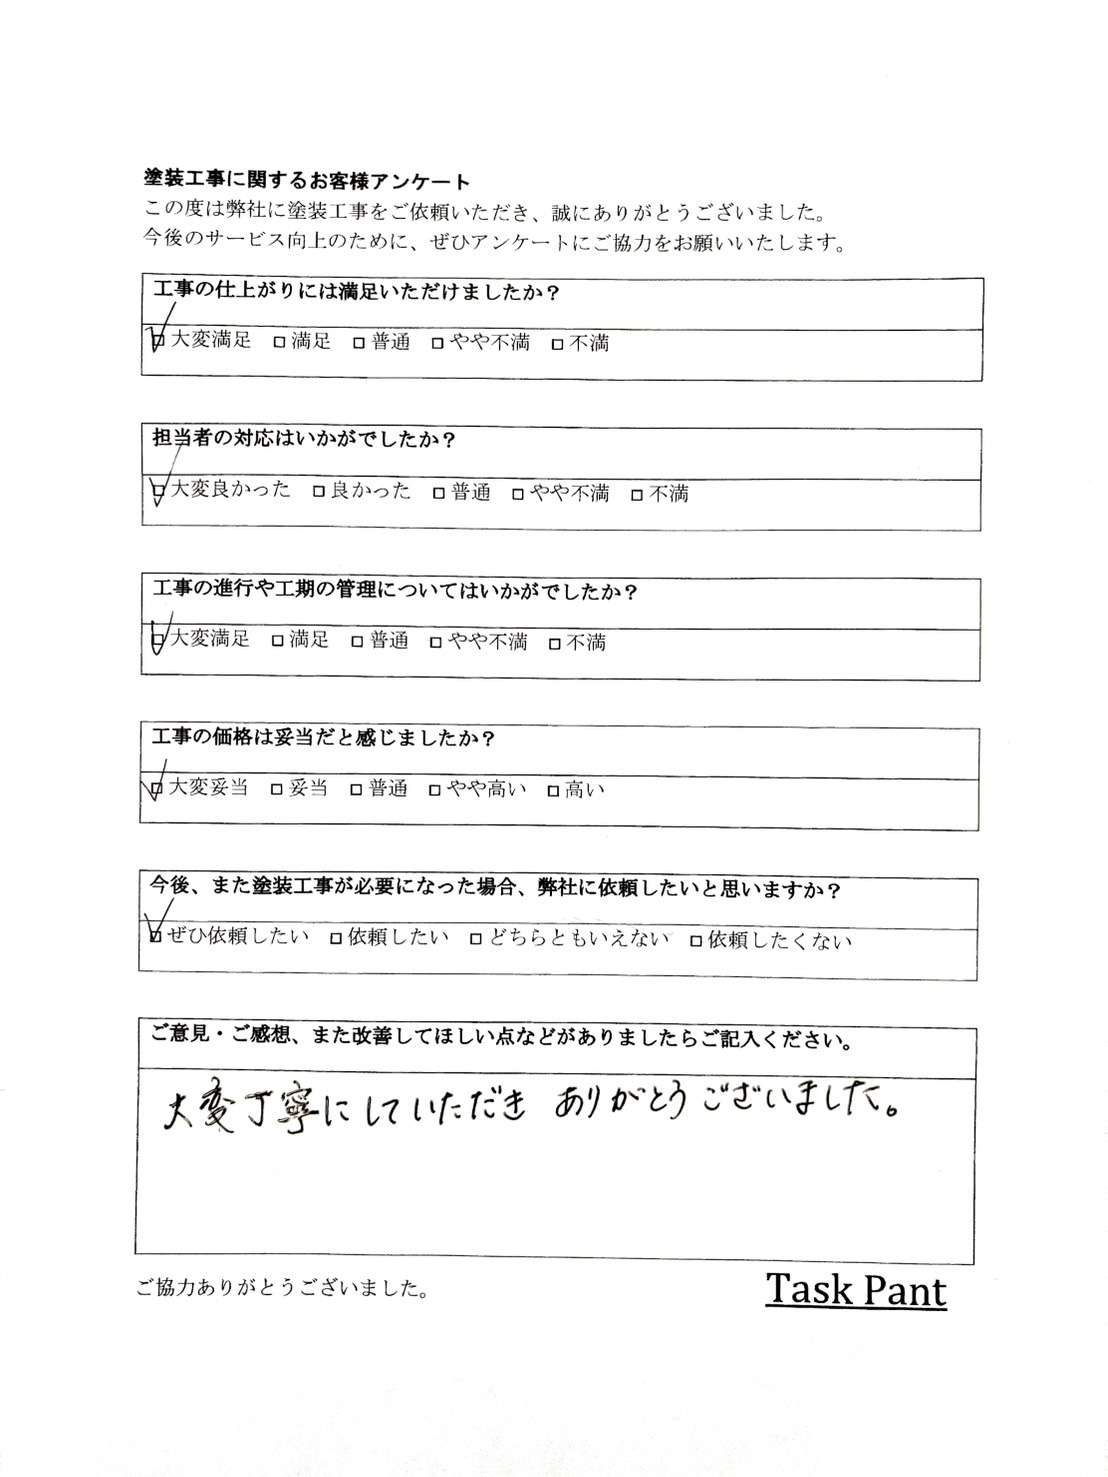 塗装工事に関するお客様アンケート
この度は弊社に塗装工事をご依頼いただき、誠にありがとうございました。
今後のサービス向上のために、ぜひアンケートにご協力をお願いいたします。
工事の仕上がりには満足いただけましたか？
☑大変満足 □満足 □普通 □やや不満 □不満
担当者の対応はいかがでしたか？
☑大変良かった □良かった □普通 □やや不満 □不満
工事の進行や工期の管理についてはいかがでしたか？
☑大変満足 □満足 □普通 □やや不満 □不満
工事の価格は妥当だと感じましたか？
☑大変妥当 □妥当 □普通 □やや高い □高い
今後、また塗装工事が必要になった場合、弊社に依頼したいと思いますか？
☑ぜひ依頼したい □依頼したい □どちらともいえない □依頼したくない
ご意見・ご感想、また改善してほしい点などがありましたらご記入ください。
大変丁寧にしていただき ありがとうございました。
ご協力ありがとうございました。
Task Pant